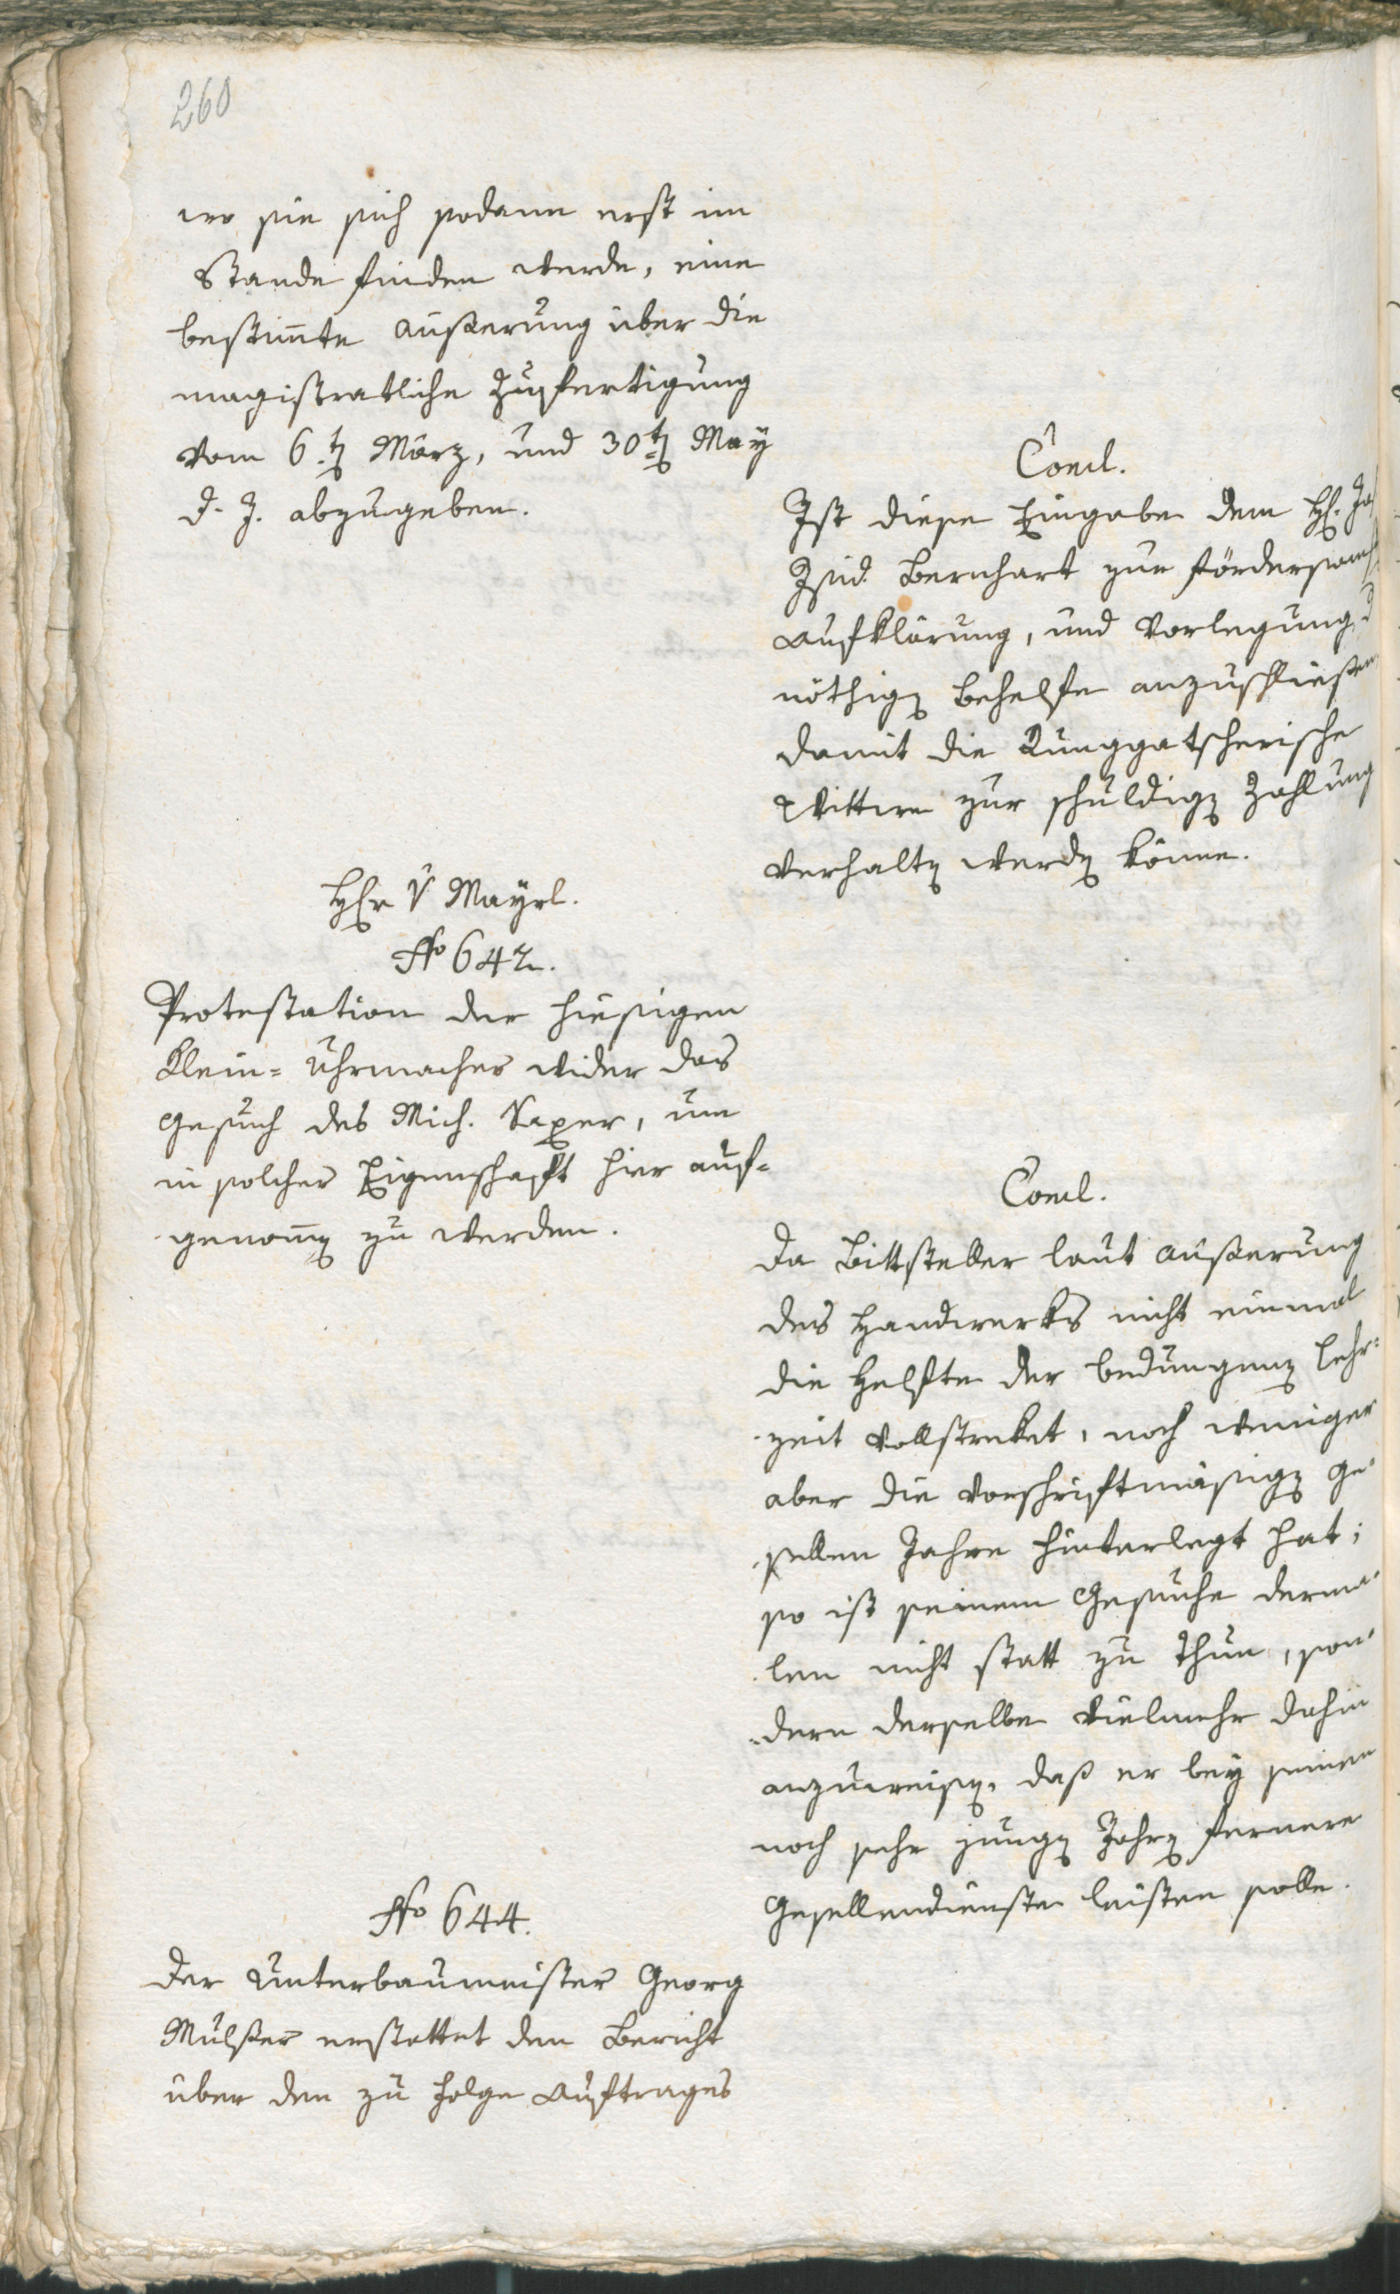 260
wo sie sich sodann erst im
Stande finden werde, eine
bestimte aüßerung über die
magistratliche Zufertigung
vom 6.tn März, und 30.tn May
d. J. abzugeben.
Concl.
Ist diese Eingabe dem H.
Bernhart zur fördersam
Aufklärung, und Vorlegung
nöthign Behelfe anzuschließen
damit die Runggatscherische
Wittwe zur schuldign Zahlung
verhaltn werdn könne.
Herr v Mayrl.
No 642.
Protestation der hiesigen
Klein-Uhrmacher wider das
Gesuch des Mich. Saxer, um
in solcher Eigenschaft hier auf-
genomn zu werden.
Concl.
Da Bittsteller laut aüßerung
des Handwerks nicht einmal
die Helfte der bedungenen Lehr-
zeit vollstreket, noch weniger
aber die vorschriftmäsign Ge-
sellen Jahre hinterlegt hat;
so ist seinem Gesuche derma-
len nicht statt zu thun, son-
dern derselbe vielmehr dahin
anzuweisn, daß er bey seinen
noch sehr jungn Jahrn fernere
Gesellendienste leisten solle.
No 644.
Der Unterbaumeister Georg
Mulser erstattet den Bericht
über den zu folge Auftrages